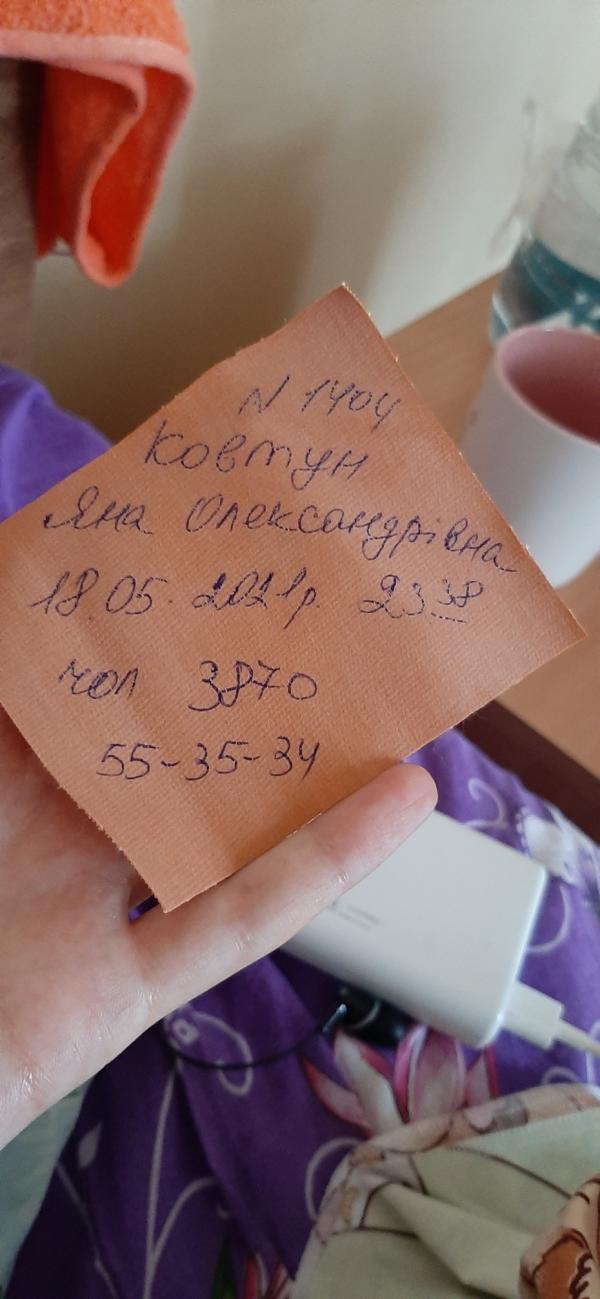 N 1404
Ковтун
Яна Олександрівна
18 05. 2021р. 23 38
чол 3870
55-35-34